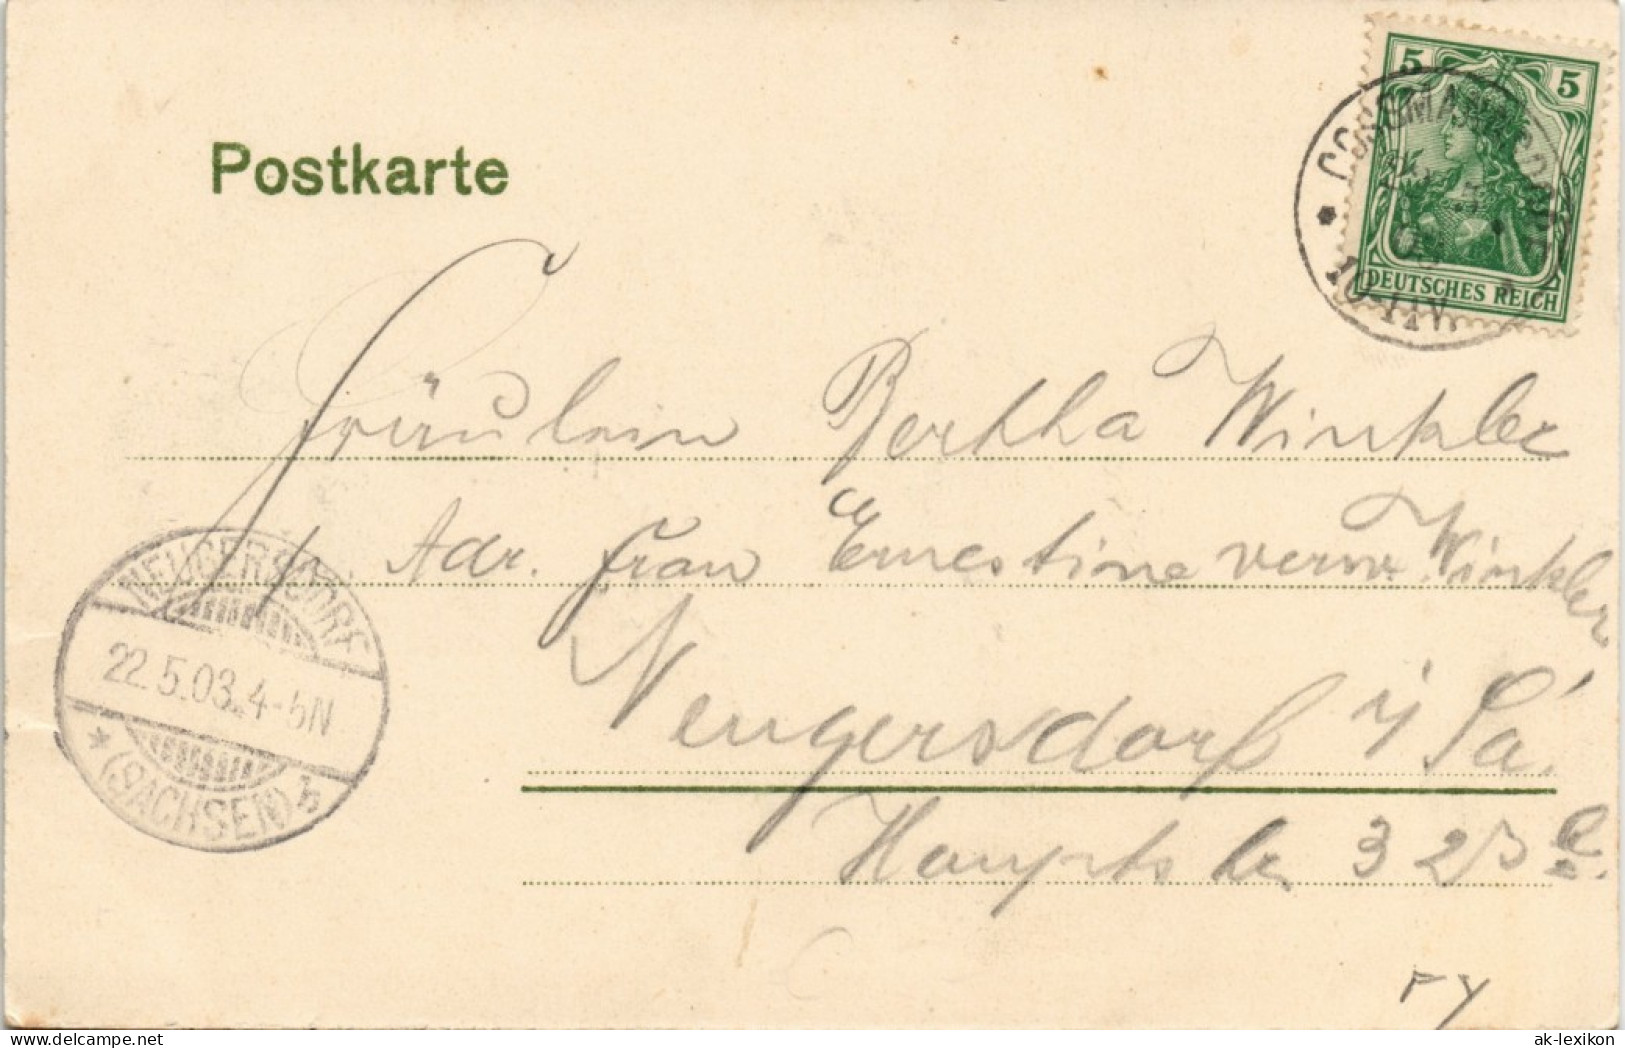 Postkarte
5 5
DEUTSCHES REICH
COSSMANNSDORF
03
10-11V.
Fräulein Bertha Winkler
Adr. Frau Ernestine verw. Winkler
Neugersdorf i/Sa.
Hauptstr.
NEUGERSDORF
22.5.03. 4-5N
* (SACHSEN) b
delcampe.net
ak-lexikon